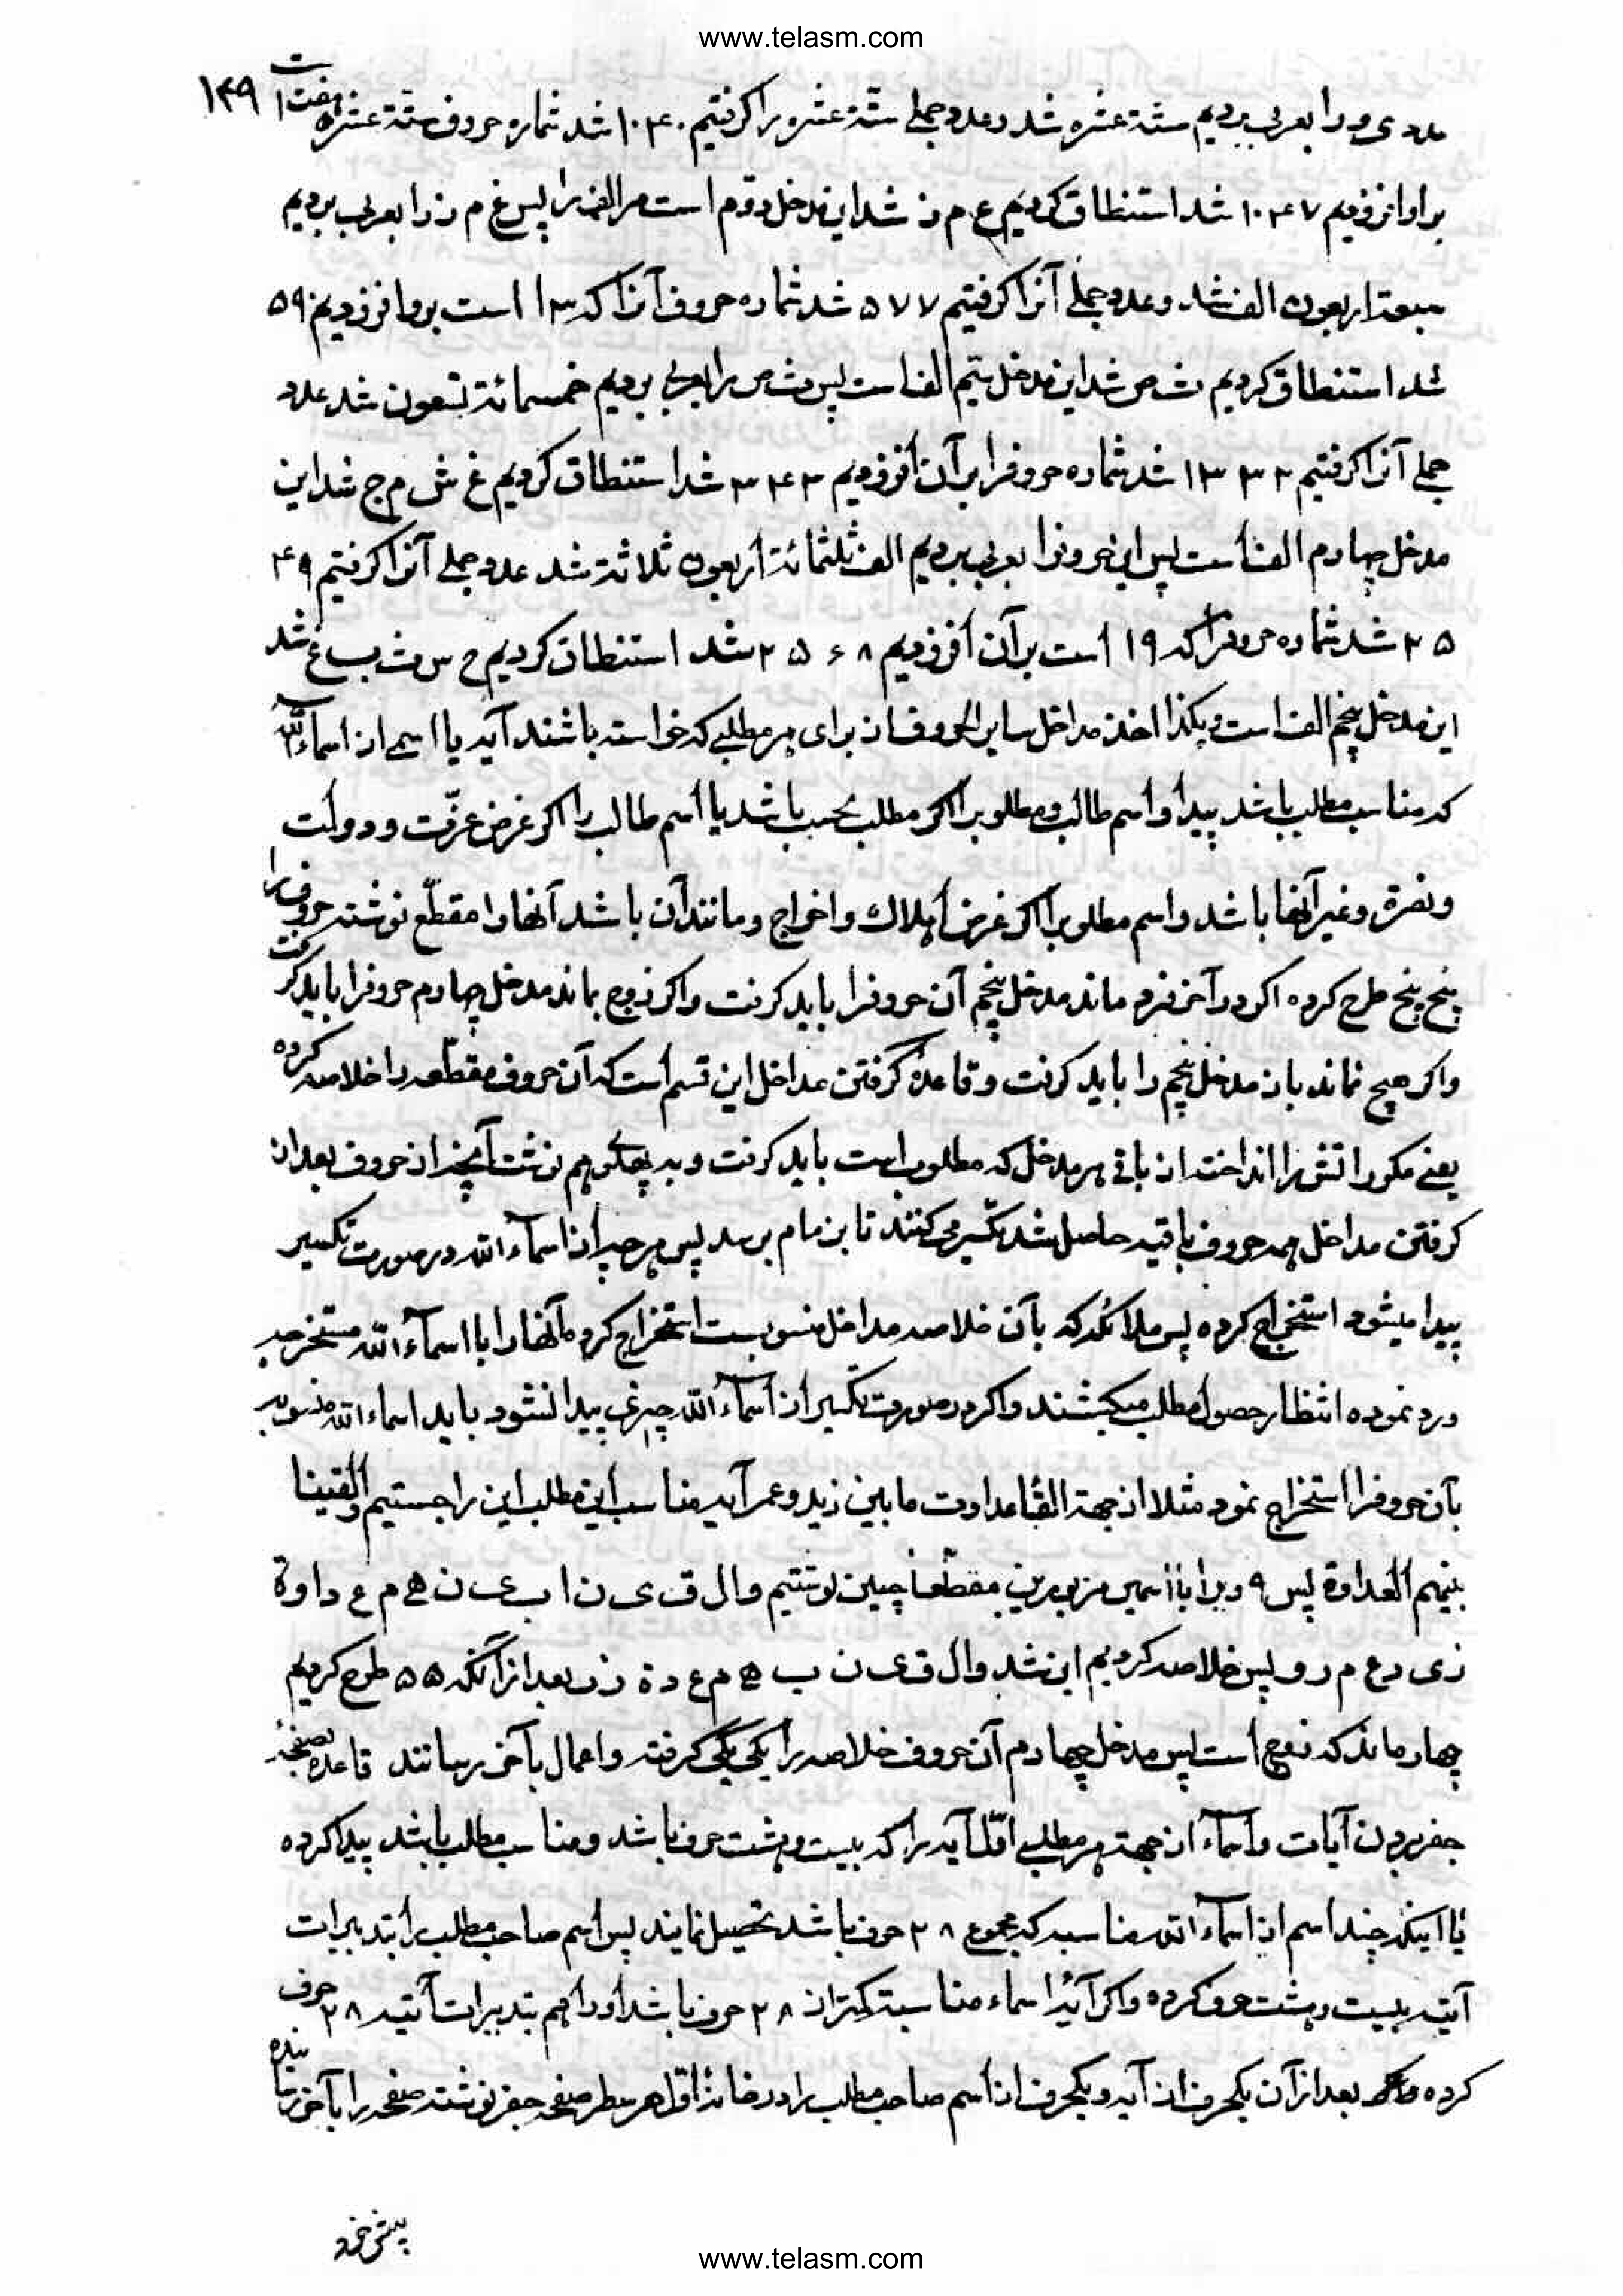 www.telasm.com
۱۴۹
عدد ی و را بعربی بردیم ستة عشره شد و عدد جملی ستة عشره را گرفتیم ۱۰۴۰ شد شماره حروف ستة عشره هفت است
براو افزودیم ۱۰۴۷ شد استنطاق کردیم غ م ز شد این مدخل دوم است مر الف را پس غ م ز را بعربی بردیم
سبعة اربعون الف شد و عدد جملی آنرا گرفتیم ۵۷۷ شد شماره حروف آنرا که ۱۳ است برو افزودیم ۵۹
شد استنطاق کردیم ث ص شد این مدخل سیم الف است پس ث ص را بعربی بردیم خمسمائة تسعون شد عدد
جملی آنرا گرفتیم ۱۳۳۲ شد شماره حروفرا بر آن افزودیم ۳۴۳ شد استنطاق کردیم غ ش م ج شد این
مدخل چهارم الف است پس این حروفرا بعربی بردیم الف ثلثمائة اربعون ثلاثة شد عدد جملی آنرا گرفتیم ۴۹
۲۵ شد شماره حروفرا که ۱۹ است بر آن افزودیم ۲۵۶۸ شد استنطاق کردیم ح س ث ب غ شد
این مدخل پنجم الف است و هکذا اخذ مداخل سایر الحروف از برای هر مطلبی که خواسته باشند آیه یا اسمی از اسماءالله
که مناسب مطلب باشد پیدا و اسم طالب و مطلوبرا اگر مطلب بحب باشد یا اسم طالب را اگر غرض عزّت و دولت
و نصرة و غیر آنها باشد و اسم مطلوبرا اگر غرض اهلاک و اخراج و مانند آن باشد آنها را مقطّع نوشته حروف را
پنج پنج طرح کرده اگر در آخر فرد ماند مدخل پنجم آن حروفرا باید گرفت و اگر زوج بماند مدخل چهارم حروفرا باید گرفت
و اگر هیچ نماند باز مدخل پنجم را باید گرفت و قاعدهٔ گرفتن مداخل این قسم است که آن حروف مقطعه را خلاصه کرده
یعنی مکوراتش را انداخته از باقی هر مدخل که مطلوب است باید گرفت و به پهلوی هم نوشت آنچه از حروف بعد از
گرفتن مداخل همه حروف باقیه حاصل شد تکسیر می کنند تا بزمام برسد پس هر چه از اسماء الله در صورت تکسیر
پیدا میشود استخراج کرده پس ملائکه که بآن خلاصه مداخل منسوبست استخراج کرده آنها را با اسماءالله مستخرجه
ورد نموده انتظار حصول مطلب میکشند و اگر در صورت تکسیر از اسماءالله چیزی پیدا نشود باید اسماءالله منسوب
بآن حروفرا استخراج نمود مثلا از جهة القاء عداوت مابین زید و عمر آیه مناسب این مطلب این را جستیم و القینا
بینهم العداوة پس ویرا با اسمین مزبورین مقطعا چنین نوشتیم و ا ل ق ی ن ا ب ی ن ه م ع د ا و ة
ز ی د ع م ر و پس خلاصه کردیم این شد و ا ل ق ی ن ب ه م ع د ة ز ر بعد از آنکه ۵۵ طرح کردیم
چهار ماند که زوج است پس مدخل چهارم آن حروف خلاصه را یکی یکی گرفته و اعمال بآخر رسانند قاعده صفحهٔ
جفر بردن آیات و اسماء از جهة هر مطلبی اوّلا آیه را که بیست و هشت حرف باشد و مناسب مطلب باشد پیدا کرده
یا اینکه چند اسم از اسماءالله مناسبه که مجموع ۲۸ حرف باشد تحصیل نمایند پس اسم صاحب مطلب را بتدبیرات
آتیه بیست و هشت حرف کرده و اگر آیه یا اسماء مناسبة کمتر از ۲۸ حرف باشد او را هم بتدبیرات آتیه ۲۸ حرف
کرده بعد از آن یکحرف از آیه و یکحرف از اسم صاحب مطلب را در خانهٔ اوّل هر سطر صفحه جفر نوشته صفحه را بآخر رسانیده
www.telasm.com